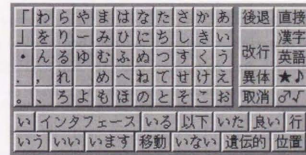 「わらやまはなたさかあ 後退 直接
」をりーみひにちしきい 漢字
・んるゆむふぬつすくう 改行 英語
、，れ めへねてせけえ 異体 ★♪
。．ろよもほのとそこお 取消 ♂√
い インタフェース いる 以下 いた 良い 行
いう いい います 移動 いない 遺伝的 位置